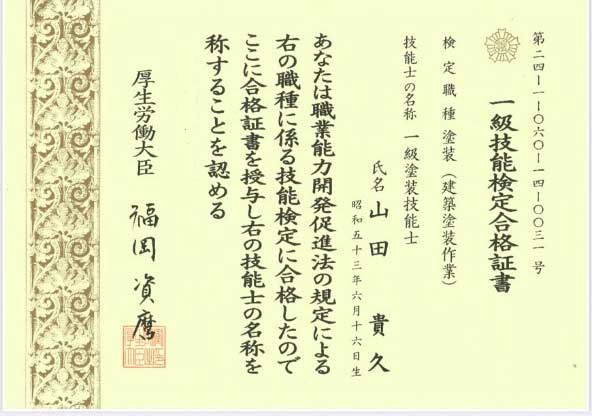 第二四ー一ー〇六〇ー一四ー〇〇三一号
一級技能検定合格証書
検定職種 塗装（建築塗装作業）
技能士の名称 一級塗装技能士
氏名 山田 貴久
昭和五十三年六月十六日生
あなたは職業能力開発促進法の規定による
右の職種に係る技能検定に合格したので
ここに合格証書を授与し右の技能士の名称を
称することを認める
厚生労働大臣 福岡資麿